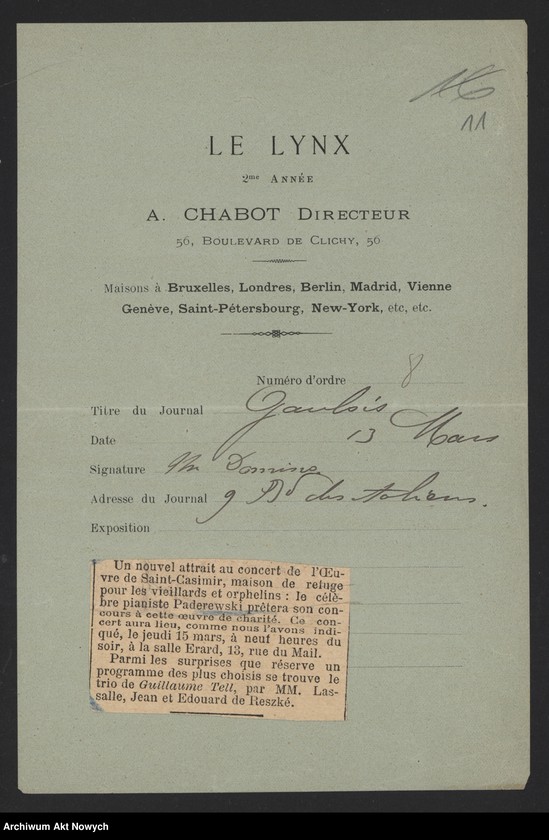 11
LE LYNX
2me ANNÉE
A. CHABOT DIRECTEUR
56, BOULEVARD DE CLICHY, 56
Maisons à Bruxelles, Londres, Berlin, Madrid, Vienne
Genève, Saint-Pétersbourg, New-York, etc, etc.
Numéro d'ordre 8
Titre du Journal Gaulois
Date 13 Mars
Signature
Adresse du Journal 9 Bd des Italiens.
Exposition
Un nouvel attrait au concert de l'Œu-
vre de Saint-Casimir, maison de refuge
pour les vieillards et orphelins : le célè-
bre pianiste Paderewski prêtera son con-
cours à cette œuvre de charité. Ce con-
cert aura lieu, comme nous l'avons indi-
qué, le jeudi 15 mars, à neuf heures du
soir, à la salle Erard, 13, rue du Mail.
Parmi les surprises que réserve un
programme des plus choisis se trouve le
trio de Guillaume Tell, par MM. Las-
salle, Jean et Edouard de Reszké.
Archiwum Akt Nowych